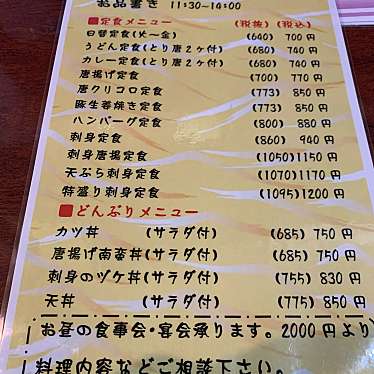 お品書き 11:30~14:00
■定食メニュー (税抜)(税込)
日替定食(火~金) (640) 700円
うどん定食(とり唐2ケ付) (680) 740円
カレー定食(とり唐2ケ付) (680) 740円
唐揚げ定食 (700) 770円
唐クリコロ定食 (773) 850円
豚生姜焼き定食 (773) 850円
ハンバーグ定食 (800) 880円
刺身定食 (860) 940円
刺身唐揚定食 (1050)1150円
天ぷら刺身定食 (1070)1170円
特盛り刺身定食 (1095)1200円
■どんぶりメニュー
カツ丼 (サラダ付) (685) 750円
唐揚げ南蛮丼(サラダ付) (685) 750円
刺身のヅケ丼(サラダ付) (755) 830円
天丼 (サラダ付) (775) 850円
お昼の食事会・宴会承ります。2000円より
料理内容などご相談下さい。